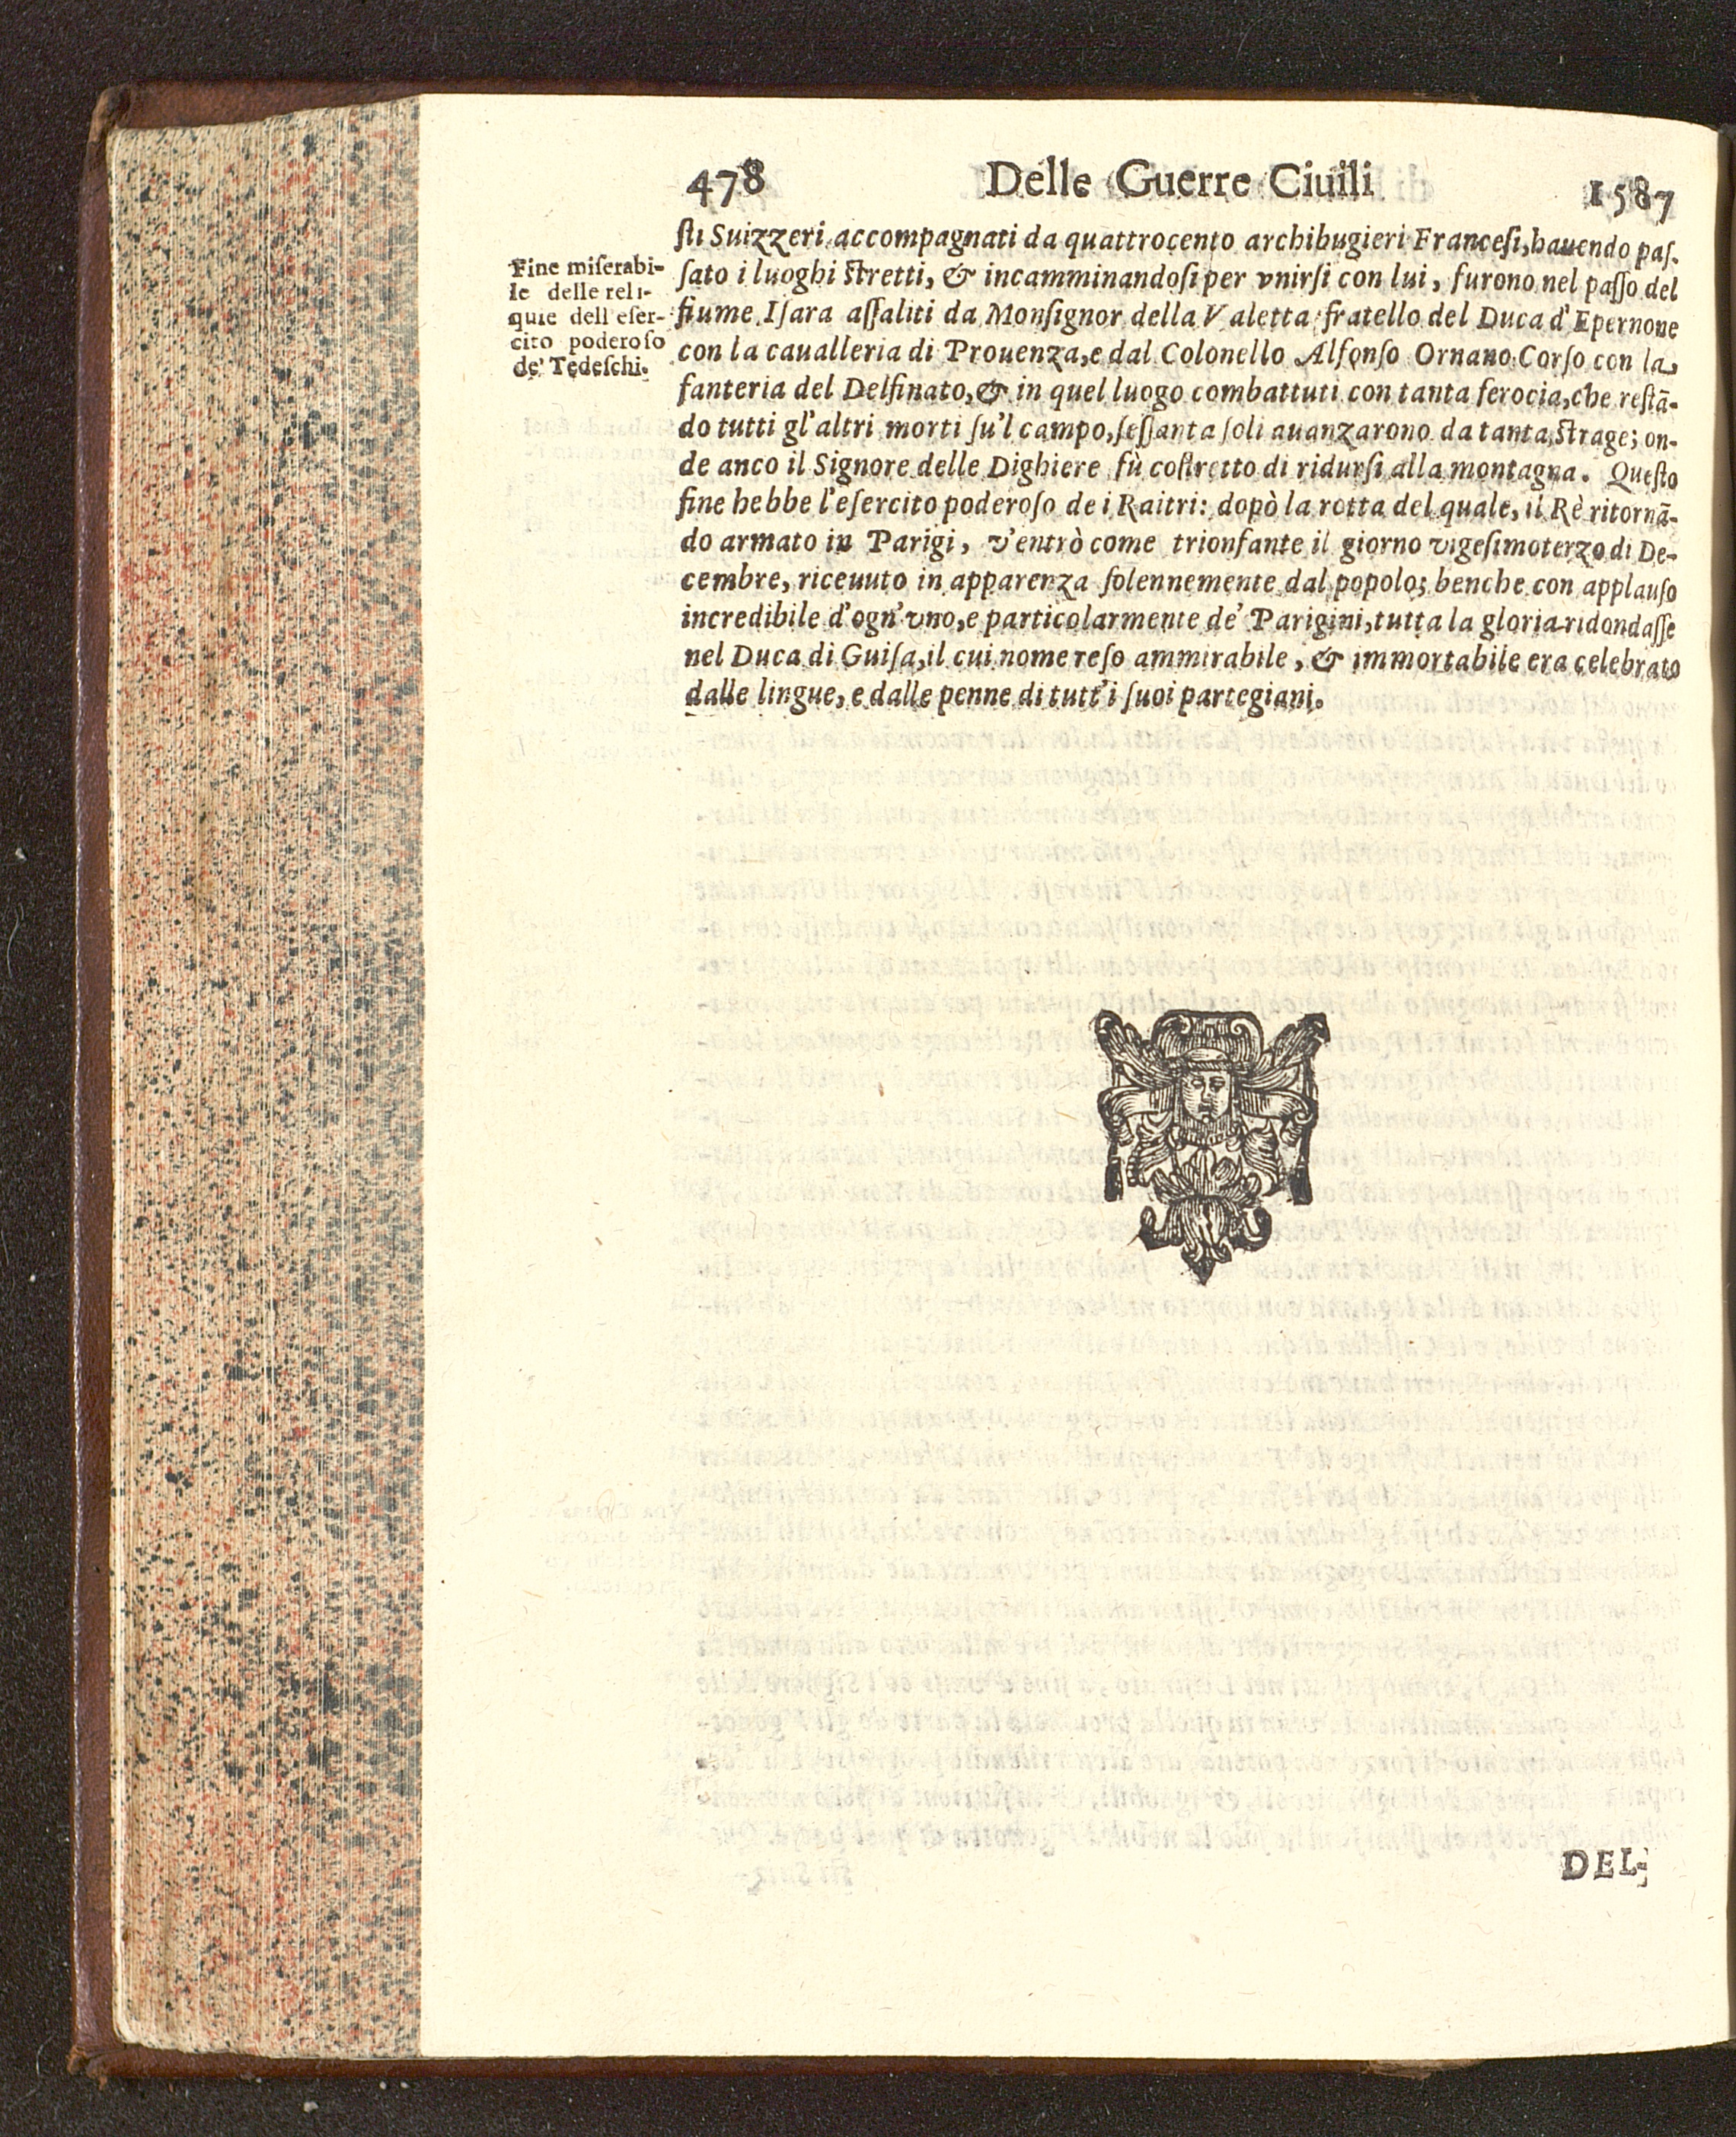 478 Delle Guerre Ciuili 1587
Fine miſerabi-
le delle reli-
quie dell eſer-
cito poderoſo
de' Tedeſchi.
ſti Suizzeri accompagnati da quattrocento archibugieri Franceſi, hauendo paſ-
ſato i luoghi ſtretti, & incamminandoſi per vnirſi con lui, furono nel paſſo del
fiume Iſara aſſaliti da Monſignor della Valetta fratello del Duca d'Epernone
con la caualleria di Prouenza, e dal Colonello Alfonſo Ornano Corſo con la
fanteria del Delfinato, & in quel luogo combattuti con tanta ferocia, che reſtã-
do tutti gl'altri morti ſu'l campo, ſeſſanta ſoli auanzarono da tanta ſtrage; on-
de anco il Signore delle Dighiere fù coſtretto di ridurſi alla montagna. Queſto
fine hebbe l'eſercito poderoſo de i Raitri: dopò la rotta del quale, il Rè ritornã-
do armato in Parigi, v'entrò come trionfante il giorno vigeſimoterzo di De-
cembre, riceuuto in apparenza ſolennemente dal popolo; benche con applauſo
incredibile d'ogn'vno, e particolarmente de' Parigini, tutta la gloria ridondaſſe
nel Duca di Guiſa, il cui nome reſo ammirabile, & immortabile era celebrato
dalle lingue, e dalle penne di tutt'i ſuoi partegiani.
DEL-